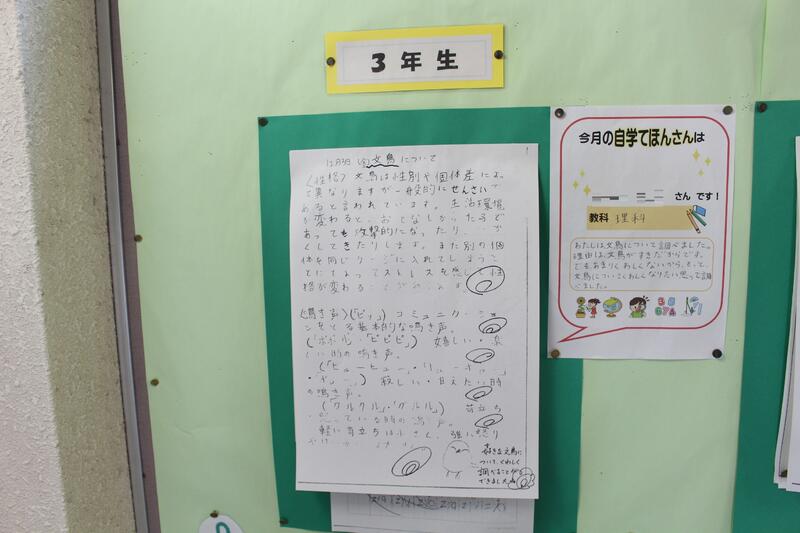 3年生
12月3日(金)文鳥について
〈性格〉文鳥は性別や個体差によっ
て異なりますが一般的にせんさいで
あると言われています。生活環境
が変わると、おとなしかった子で
あっても攻撃的になったり、
くしてきたりします。また別の個
体を同じケージに入れてしまうこ
とによってストレスを感じ、性
格が変わることがあります。
〈鳴き声〉(「ピッ」)コミュニケーショ
ンをとる基本的な鳴き声。
(「ポポポ」・「ピピピ」)嬉しい・楽
しい時の鳴き声。
寂しい・甘えたい時
の鳴き声。
(「クルクル」・「グルル」)苛立ち
ている時の鳴き声。
軽い苛立ちは小さく、強い怒り
好きな文鳥に
ついて、くわしく
調べることが
できましたね
今月の自学てほんさんは
さん です!
教科 理科
わたしは文鳥について調べました。
理由は、文鳥がすきだからです。
でも、あまりくわしくないから、もっと、
文鳥についてくわしくなりたい思って調
べました。